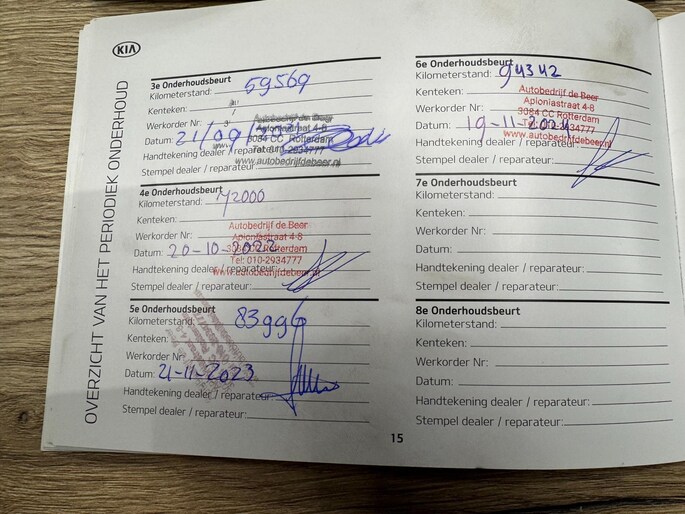 KIA
OVERZICHT VAN HET PERIODIEK ONDERHOUD
3e Onderhoudsbeurt
Kilometerstand: 59569
Kenteken:
Werkorder Nr:
Autobedrijf de Beer
Aploniastraat 4-8
3084 CC Rotterdam
Tel: 010-2934777
www.autobedrijfdebeer.nl
Datum: 21/09/
Handtekening dealer / reparateur:
Stempel dealer / reparateur:
4e Onderhoudsbeurt
Kilometerstand: 72000
Kenteken:
Autobedrijf de Beer
Werkorder Nr:
Aploniastraat 4-8
3084 CC Rotterdam
Datum: 20-10-2022
Tel: 010-2934777
Handtekening dealer / reparateur:
www.autobedrijfdebeer.nl
Stempel dealer / reparateur:
5e Onderhoudsbeurt
Kilometerstand: 83996
Kenteken:
Werkorder Nr:
Datum: 21-11-2023
Handtekening dealer / reparateur:
Stempel dealer / reparateur:
6e Onderhoudsbeurt
Kilometerstand: 94342
Kenteken:
Autobedrijf de Beer
Werkorder Nr:
Aploniastraat 4-8
3084 CC Rotterdam
Datum: 19-11-2024
Tel: 010-2934777
www.autobedrijfdebeer.nl
Handtekening dealer / reparateur:
Stempel dealer / reparateur:
7e Onderhoudsbeurt
Kilometerstand:
Kenteken:
Werkorder Nr:
Datum:
Handtekening dealer / reparateur:
Stempel dealer / reparateur:
8e Onderhoudsbeurt
Kilometerstand:
Kenteken:
Werkorder Nr:
Datum:
Handtekening dealer / reparateur:
Stempel dealer / reparateur:
15